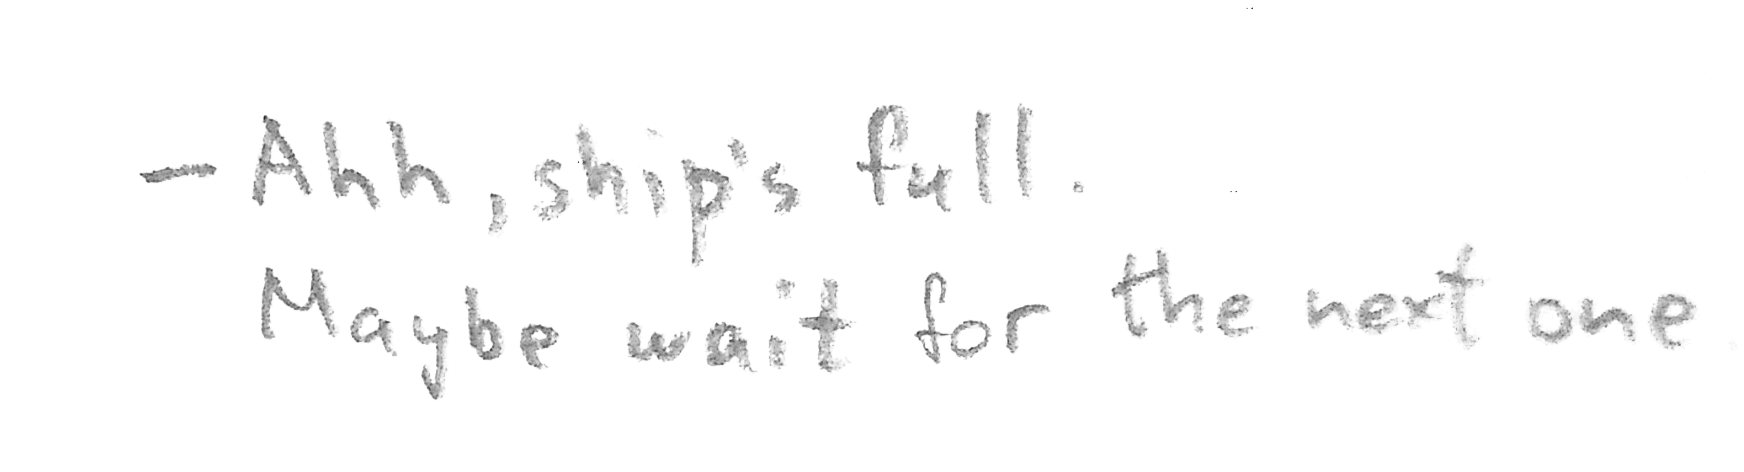 — Ahh, ship's full.
Maybe wait for the next one